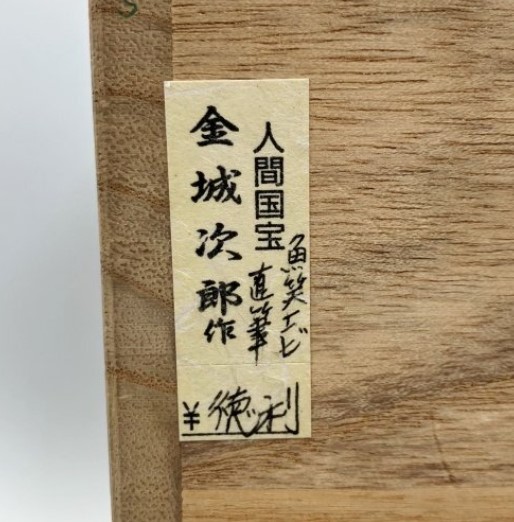 人間国宝
魚笑エビ
直筆
金城次郎作
¥徳利